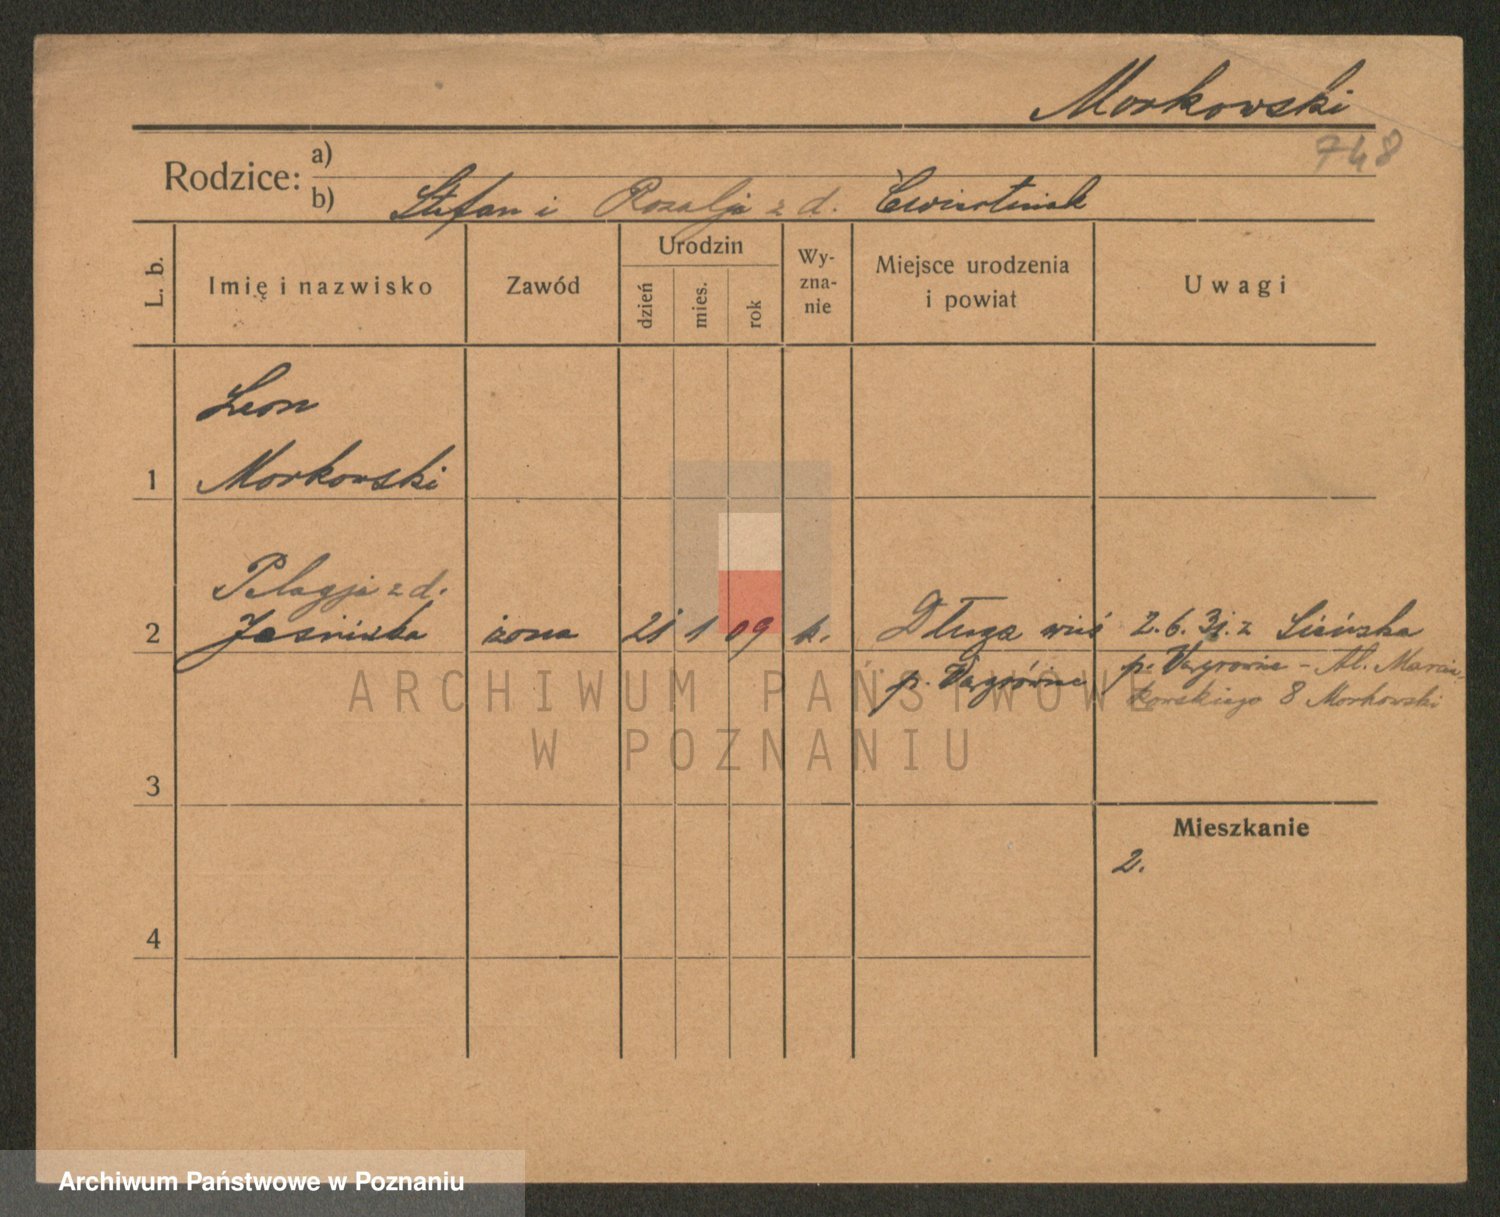 Morkowski
748
Rodzice:
a)
b) Stefan i Rozalja z d. Ćwiertniak
L. b.
Imię i nazwisko
Zawód
Urodzin
dzień
mies.
rok
Wy-
zna-
nie
Miejsce urodzenia
i powiat
Uwagi
1
Leon
Morkowski
2
Pelagja z d.
Jaśnicka żona 21 1 09 k. Długa wieś 2.6.31. z
p. Wągrówiec p. Wągrowiec - Al. Marcin
kowskiego 8 Morkowski
3
4
Mieszkanie
2.
ARCHIWUM PAŃSTWOWE
W POZNANIU
Archiwum Państwowe w Poznaniu